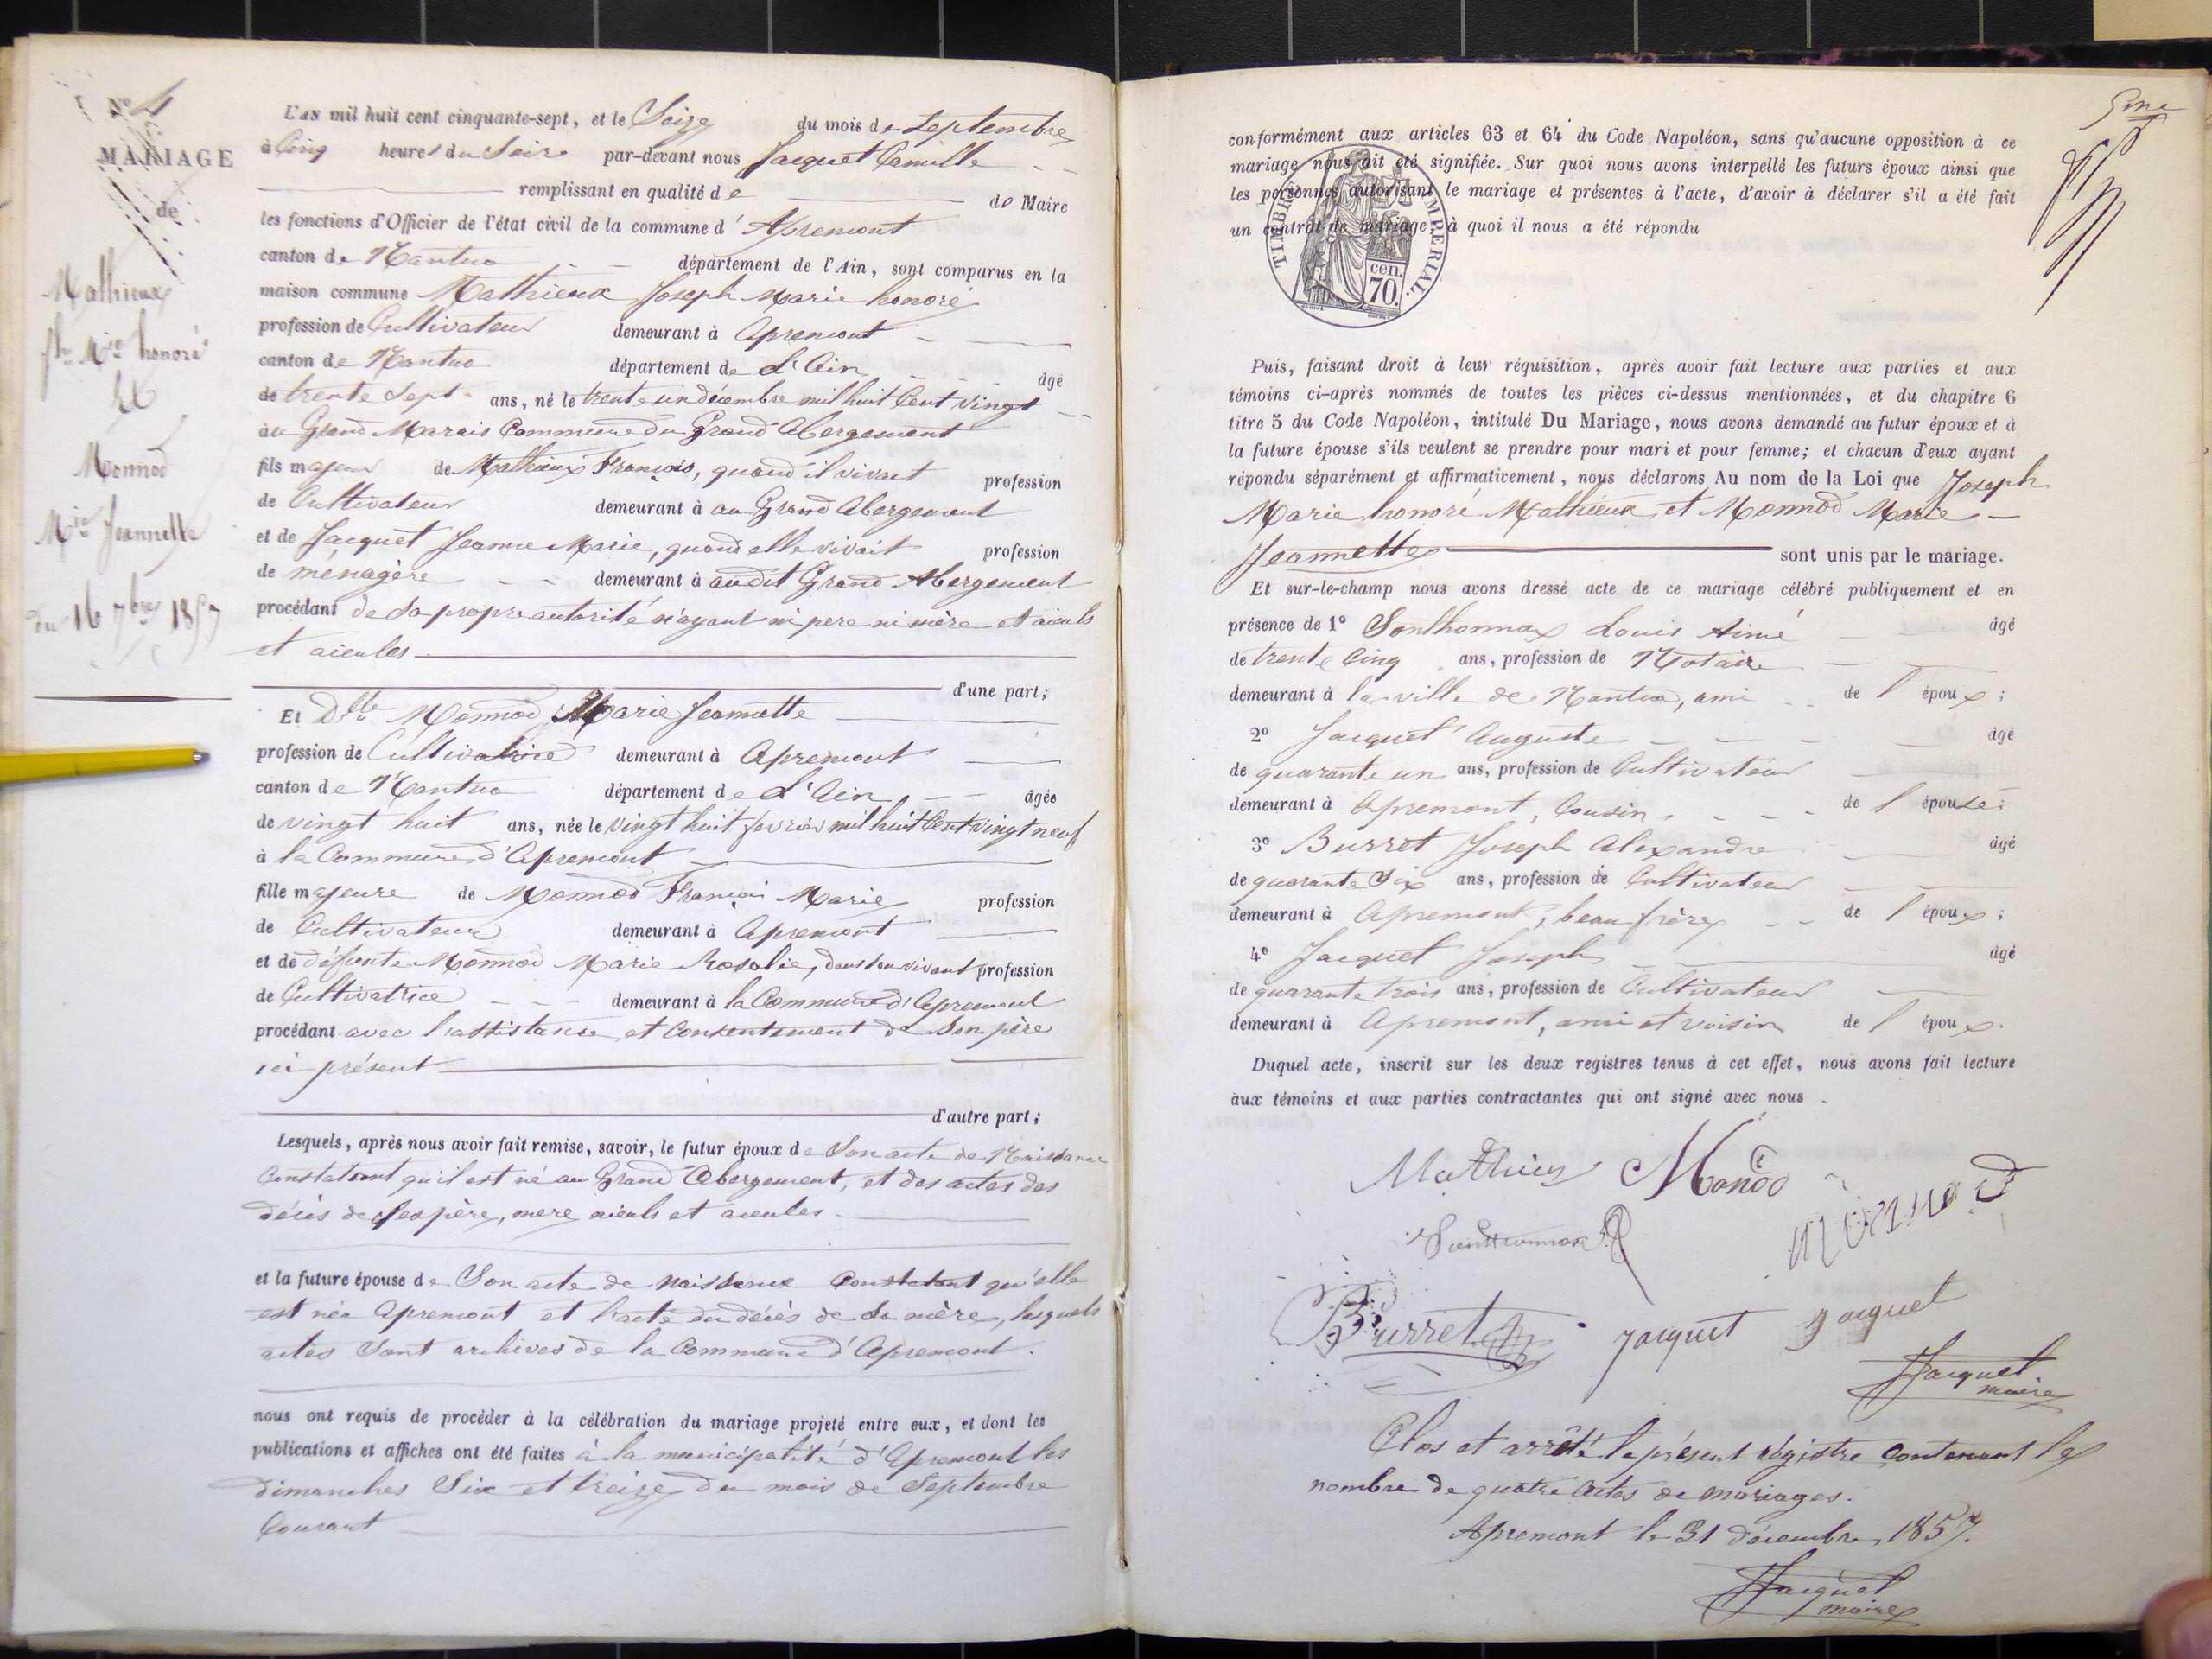 N° 4
MARIAGE
de
Mathieux
Jh Mie honoré
&
Monnod
Mie Jeannette
du 16 7bre 1857
L'AN mil huit cent cinquante-sept, et le Seize du mois de Septembre
à Cinq heures du Soir par-devant nous Jacquet Camille
remplissant en qualité de de Maire
les fonctions d'Officier de l'état civil de la commune d'Apremont
canton de Nantua département de l'Ain, sont comparus en la
maison commune Mathieux Joseph Marie honoré
profession de Cultivateur demeurant à Apremont
canton de Nantua département de L'Ain âgé
de trente Sept ans, né le trente un décembre mil huit Cent vingt
au Grand Marais Commune du Grand Abergement
fils majeur de Mathieux François, quand il vivait profession
de Cultivateur demeurant à au Grand Abergement
et de Jacquet Jeanne Marie, quand elle vivait profession
de ménagère demeurant à audit Grand Abergement
procédant de Sa propre autorité n'ayant ni pere ni mère et aieuls
et aieules
d'une part;
Et Dlle Monnod Marie Jeannette
profession de Cultivatrice demeurant à Apremont
canton de Nantua département de L'Ain âgée
de vingt huit ans, née le vingt huit fevrier mil huit Cent vingt neuf
à la Commune d'Apremont
fille majeure de Monnod François Marie profession
de Cultivateur demeurant à Apremont
et de défunte Monnod Marie Rosalie, dans son vivant profession
de Cultivatrice demeurant à la Commune d'Apremont
procédant avec l'assistance et Consentement de Son père
ici présent
d'autre part;
Lesquels, après nous avoir fait remise, savoir, le futur époux de Son acte de Naissance
Constatant qu'il est né au Grand Abergement, et des actes des
décès de Ses père, mere aieuls et aieules
et la future épouse de Son acte de naissance Constatant qu'elle
est née Apremont et l'acte du décès de Sa mère, lesquels
actes Sont archives de la Commune d'Apremont.
nous ont requis de procéder à la célébration du mariage projeté entre eux, et dont les
publications et affiches ont été faites à la municipalité d'Apremont les
dimanches Six et treize du mois de Septembre
Courant
conformément aux articles 63 et 64 du Code Napoléon, sans qu'aucune opposition à ce
mariage nous ait été signifiée. Sur quoi nous avons interpellé les futurs époux ainsi que
les personnes autorisant le mariage et présentes à l'acte, d'avoir à déclarer s'il a été fait
un contrat de mariage, à quoi il nous a été répondu
TIMBRE IMPERIAL.
70 cen.
Puis, faisant droit à leur réquisition, après avoir fait lecture aux parties et aux
témoins ci-après nommés de toutes les pièces ci-dessus mentionnées, et du chapitre 6
titre 5 du Code Napoléon, intitulé Du Mariage, nous avons demandé au futur époux et à
la future épouse s'ils veulent se prendre pour mari et pour femme; et chacun d'eux ayant
répondu séparément et affirmativement, nous déclarons Au nom de la Loi que Joseph
Marie honoré Mathieux et Monnod Marie
Jeannette sont unis par le mariage.
Et sur-le-champ nous avons dressé acte de ce mariage célébré publiquement et en
présence de 1° Sonthonnax Louis Aimé âgé
de trente Cinq ans, profession de Notaire
demeurant à la ville de Nantua, ami de l'époux;
2° Jacquet Auguste âgé
de quarante un ans, profession de Cultivateur
demeurant à Apremont, Cousin de l'épouse;
3° Burret Joseph Alexandre âgé
de quarante Six ans, profession de Cultivateur
demeurant à Apremont, beau frère de l'époux;
4° Jacquet Joseph âgé
de quarante trois ans, profession de Cultivateur
demeurant à Apremont, ami et voisin de l'époux.
Duquel acte, inscrit sur les deux registres tenus à cet effet, nous avons fait lecture
aux témoins et aux parties contractantes qui ont signé avec nous.
Mathieux Monod
Sonthonnax Monnod
Burret Jacquet Jacquet
Jacquet
maire
Clos et arrêté le présent régistre contenant le
nombre de quatre Actes de mariages.
Apremont le 31 décembre 1857.
Jacquet
maire